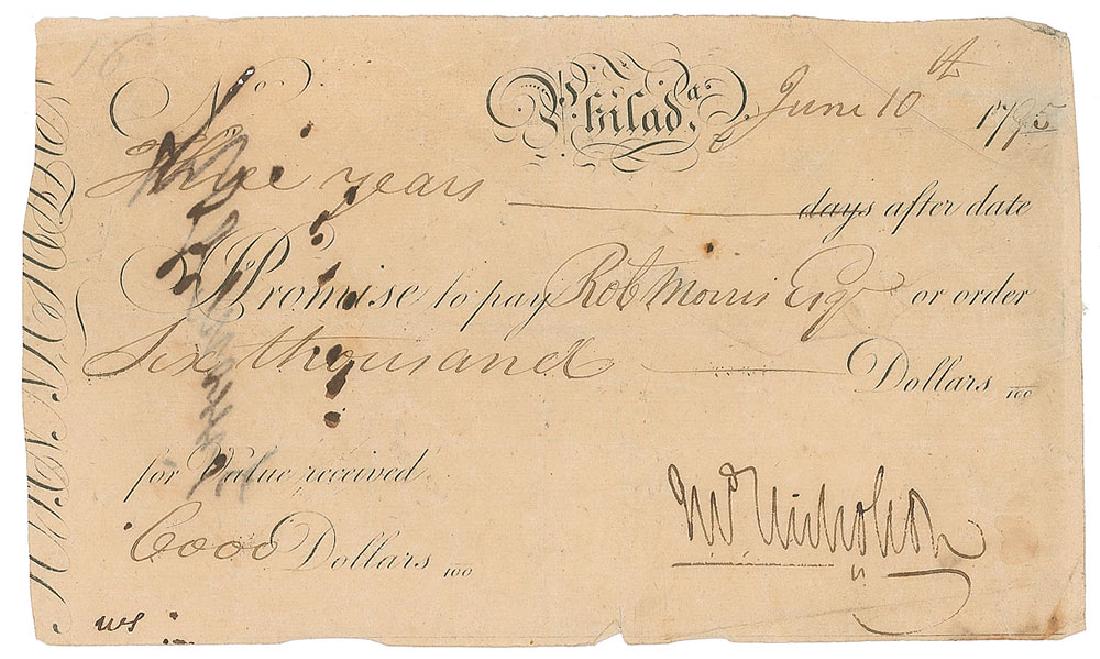 16
No Philad.a June 10th 1795
Three years days after date
Promise to pay Rob Morris Esqr or order
Six thousand Dollars /100
for Value received
6000 Dollars /100
Jno Nicholson
ws